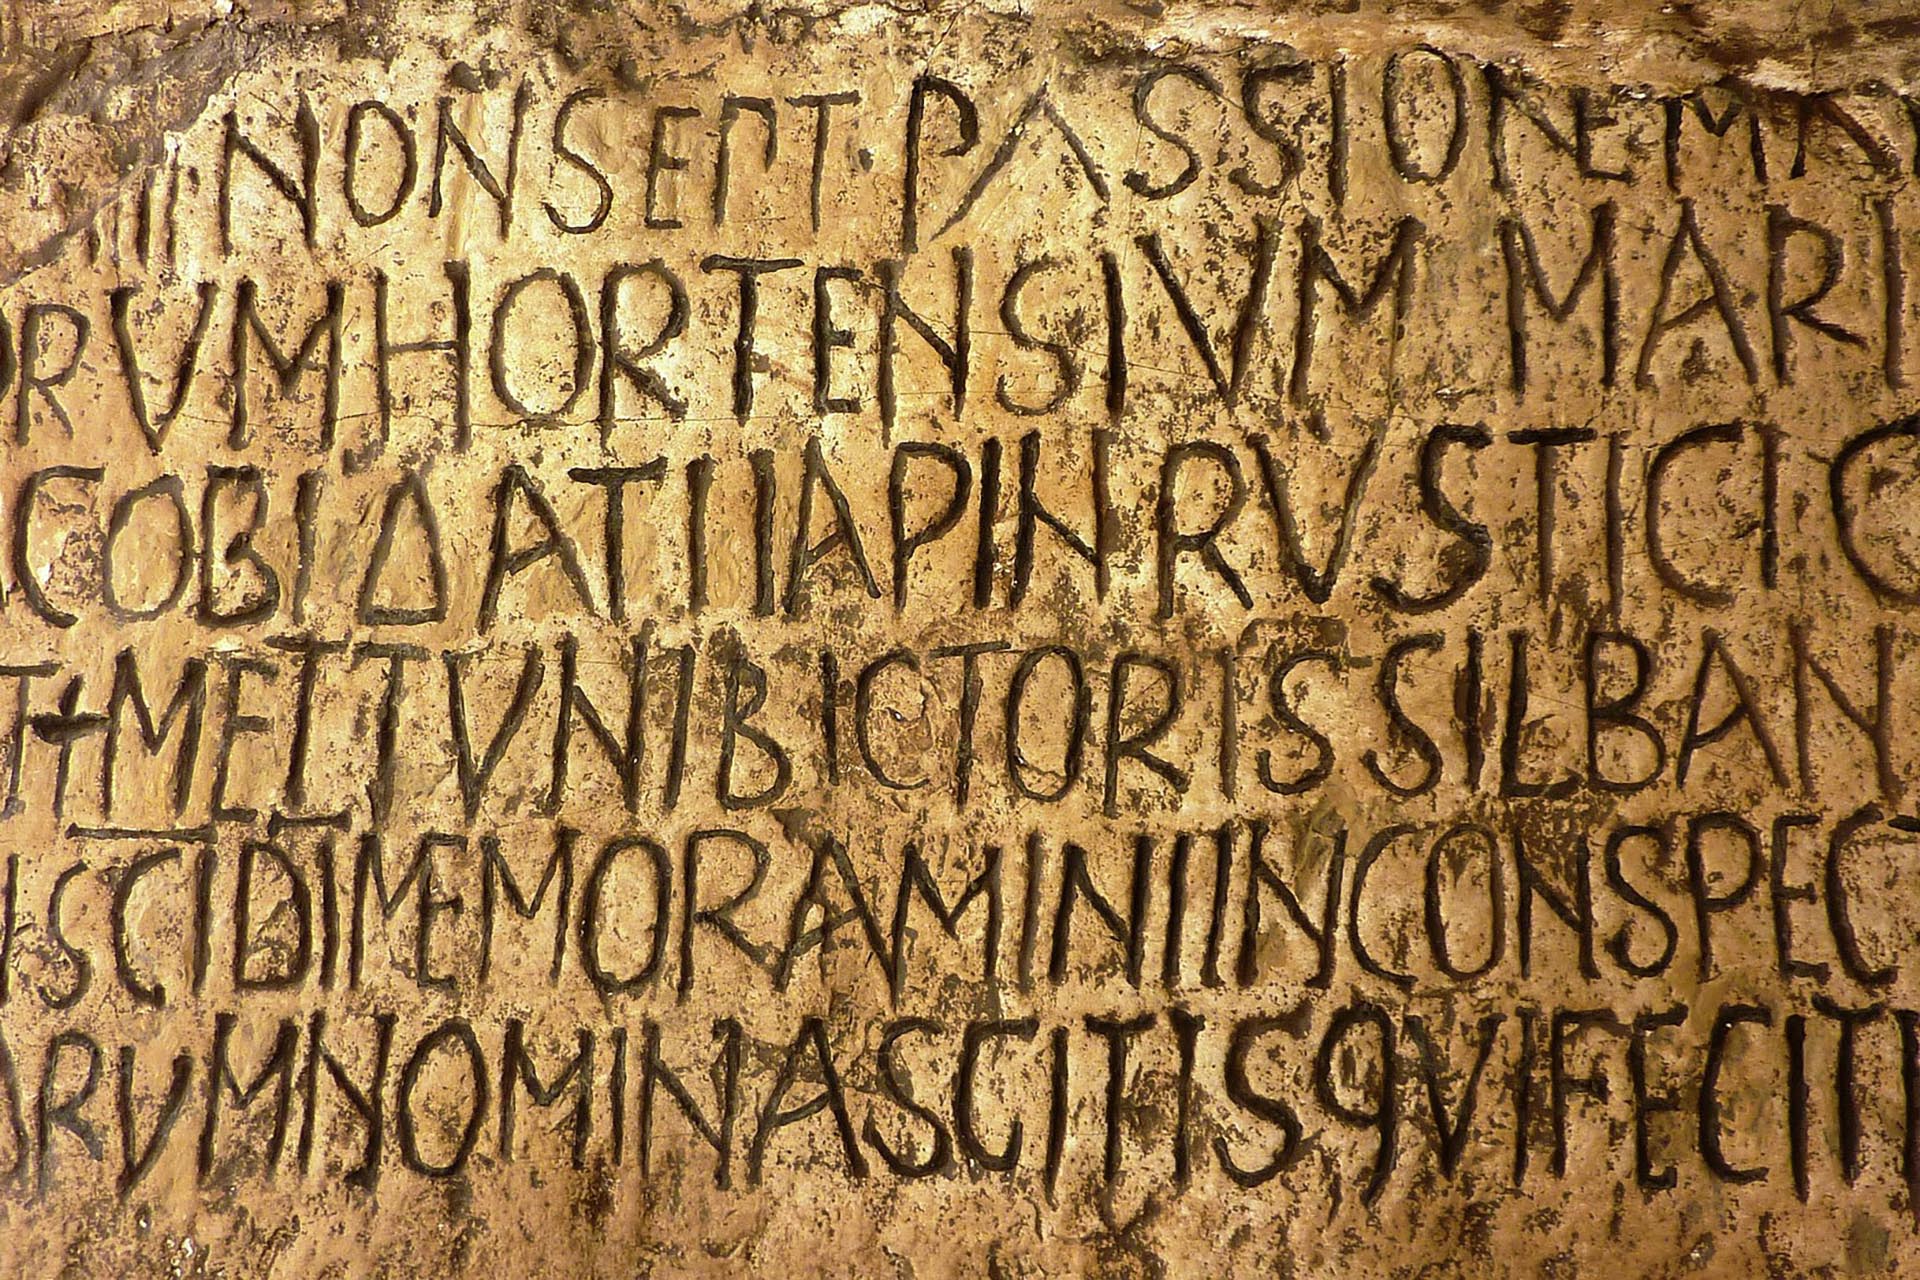 III NON SEPT · PASSIONE MA
ORUM HORTENSIVM MARI
COBI ΔATI IAPIN RVSTICI C
T + METTVNI BICTORIS SILBAN
ISCI DI MEMORAMINI IN CONSPECT
ARVM NOMINA SCITIS QVI FECIT I